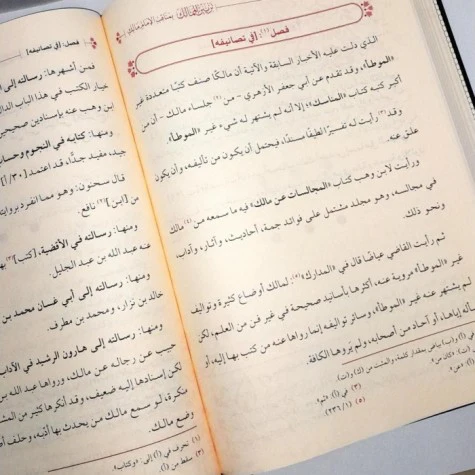 تزيين الممالك بمناقب الإمام مالك
فصل [في تصانيفه]
الذي دلت عليه الأخبار السابقة والآتية أن مالكًا صنف كتبًا متعددة غير
«الموطأ»، وقد تقدم عن أبي جعفر الأزهري - من (٢) جلساء مالك - أن من
أكبر كتبه كتاب «المناسك» إلا أنه لم يشتهر له شيء غير «الموطأ».
وقد (٣) رأيت له تفسيرًا لطيفًا مسندًا، فيحتمل أن يكون من تأليفه، وأن يكون
علق عنه.
ورأيت لابن وهب كتاب «المجالسات عن مالك» فيه ما سمعه من (٤) مالك
في مجالسه، وهو مجلد مشتمل على فوائد جمة، أحاديث، وآثار، وآداب،
ونحو ذلك.
ثم رأيت القاضي عياضًا قال في «المدارك» (٥): لمالك أوضاع كثيرة وتواليف
غير «الموطأ» مروية عنه، أكثرها بأسانيد صحيحة في غير فن من العلم، لكن
لم يشتهر عنه غير «الموطأ»، وسائر تواليفه إنما رواها عنه من كتب بها إليه، أو
سأله إياها، أو آحاد من أصحابه، ولم يروها الكافة.
(٣) في (أ): «ثم».
(٥) (١/ ٢٣٦).
فصل [في تصانيفه]
فمن أشهرها: رسالته إلى
خيار الكتب في هذا الباب الدال
ابن وهب عنه بإسنادين صحيحين
ومنها: كتابه في النجوم وحساب
جيد، مفيد جدًّا، قد اعتمد [٣٠/أ]
قال سحنون: وهو مما انفرد بروايته
من [ابن] (٢) نافع.
ومنها: رسالته في الأقضية، [كتب] (٣) بها
عنه عبد الله بن عبد الجليل.
ومنها: رسالته إلى أبي غسان محمد بن
خالد بن نزار، ومحمد بن مطرف.
ومنها: رسالته إلى هارون الرشيد في الآداب
حبيب عن رجاله عن مالك، ورواها عبد الله بن
لكن إسنادها إليه ضعيف، وقد أنكرها كثير من
منكرة، لو سمع مالك من يحدث بها أدبه، وحلف
وضع مالك.
(١) تحرف في (أ) إلى: «وكتاب».
(٢) سقط من (أ).